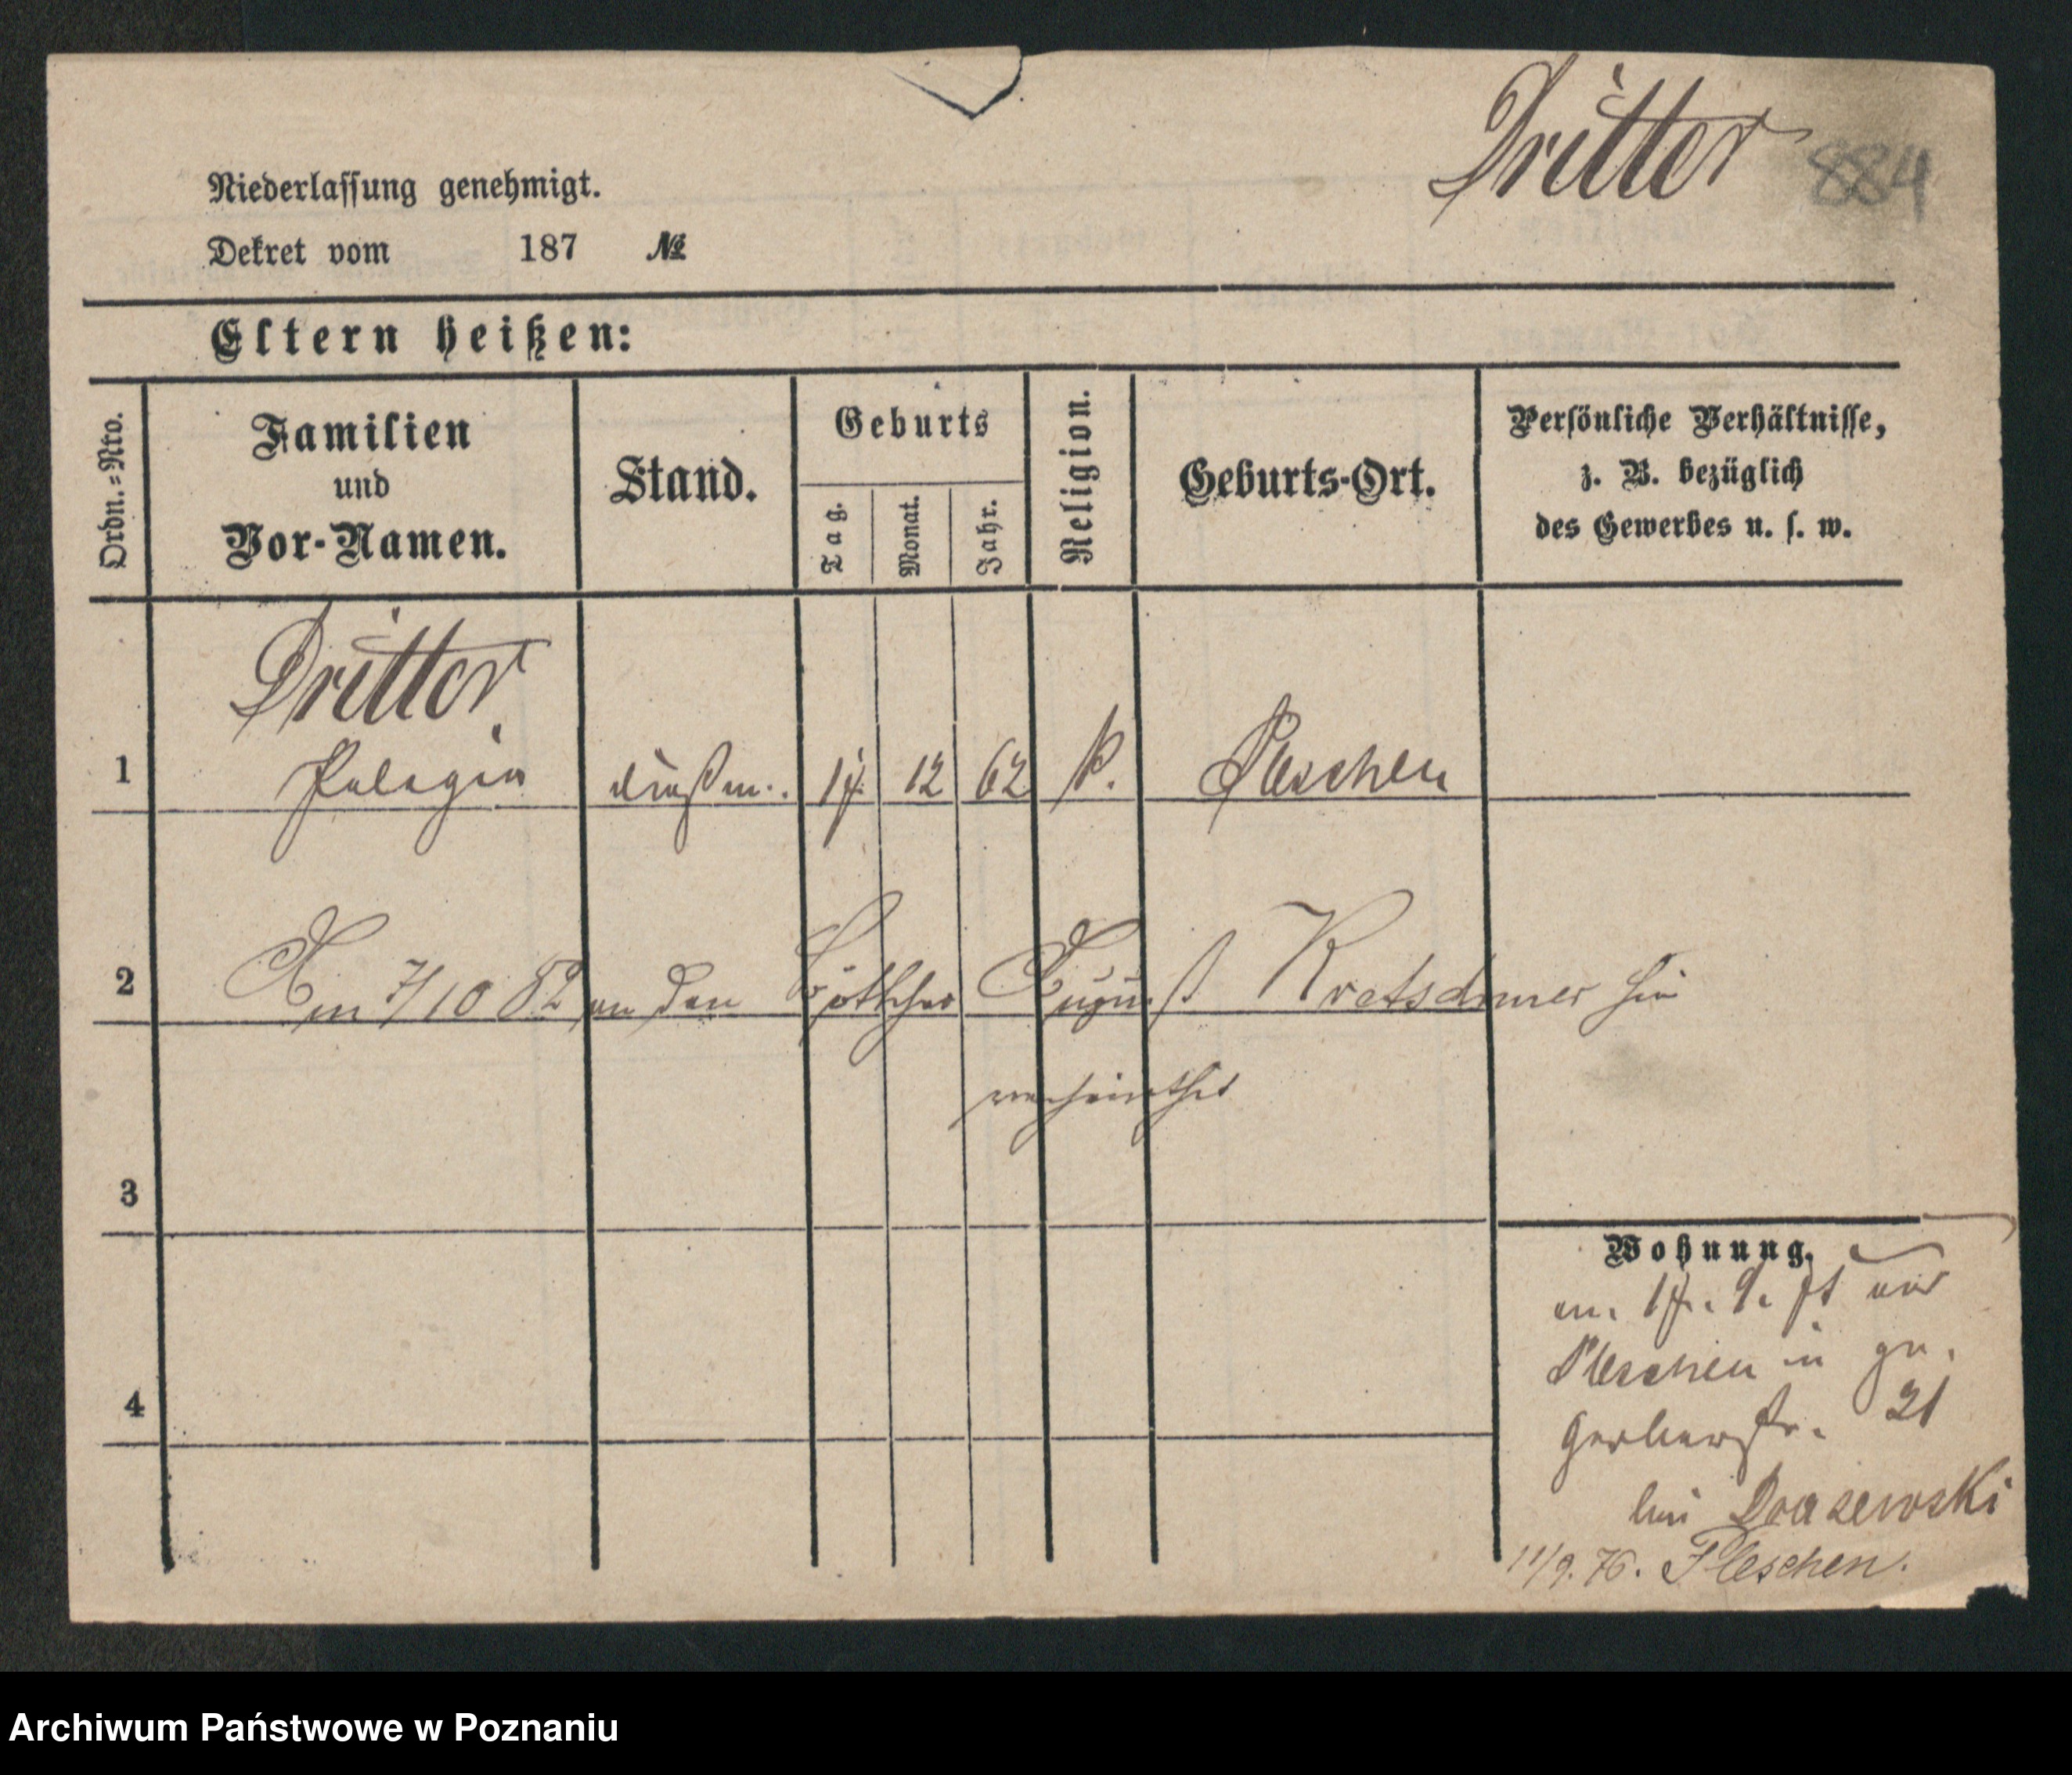 Dritter 884
Niederlassung genehmigt.
Dekret vom 187 №
Eltern heißen:
Ordn.-Nro.
Familien
und
Vor-Namen.
Stand.
Geburts
Tag.
Monat.
Jahr.
Religion.
Geburts-Ort.
Persönliche Verhältnisse,
z. B. bezüglich
des Gewerbes u. s. w.
Dritter
1 Pelagia dienstm. 17. 12 62 k. Pleschen
2 Am 7/10 82 an den Böttcher August Kretschmer hier
verheirathet
3
Wohnung.
am. 17. 9. 71 aus
Pleschen in gr.
4
Gerberstr. 21
bei Drazewski
11/9. 76. Pleschen.
Archiwum Państwowe w Poznaniu